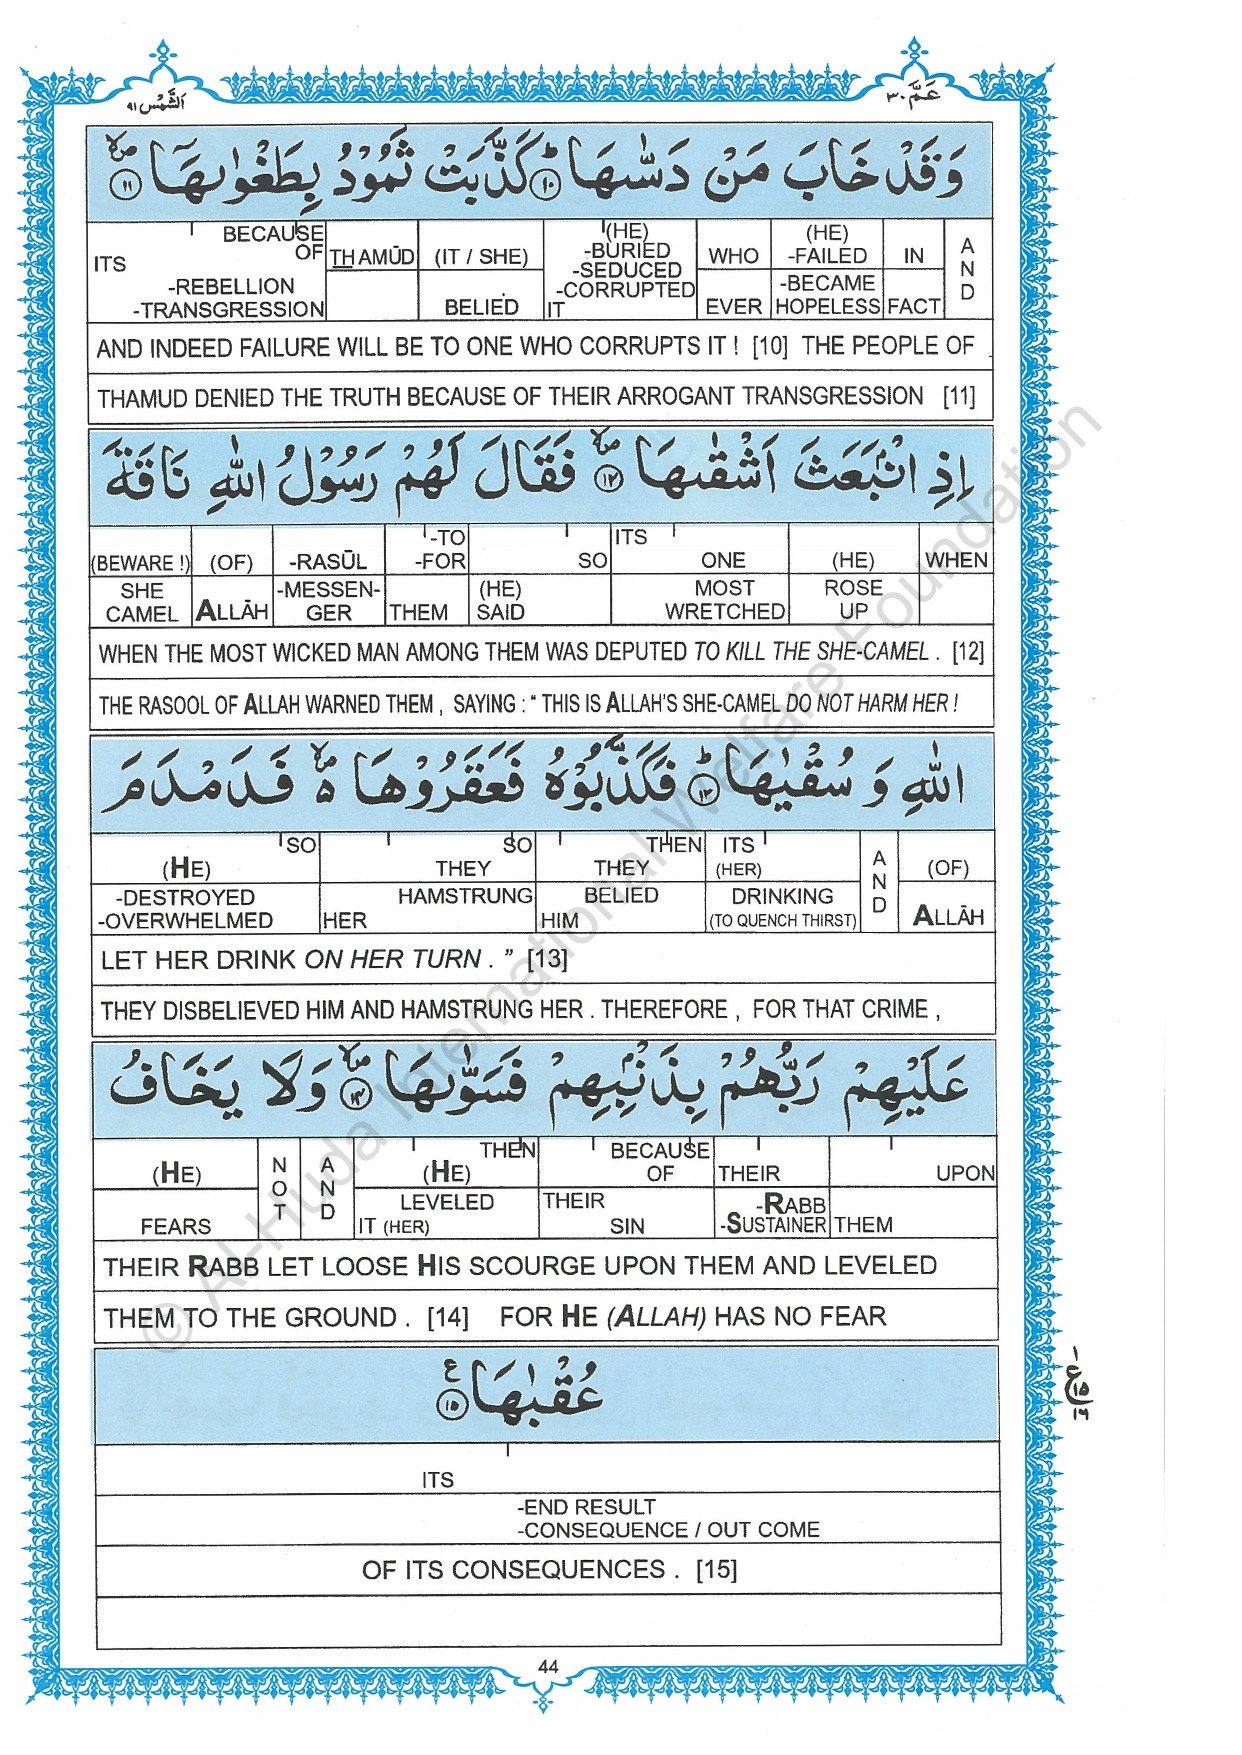 الشَّمْس ٩١
عَمَّ ٣٠
وَقَدْ خَابَ مَنْ دَسّٰىهَا ۞ؕ ١٠ كَذَّبَتْ ثَمُوْدُ بِطَغْوٰىهَاۤ ١١
ITS BECAUSE OF THAMŪD (IT / SHE) (HE) -BURIED -SEDUCED -CORRUPTED WHO (HE) -FAILED IN AND
-REBELLION -TRANSGRESSION BELIED IT EVER -BECAME HOPELESS FACT
AND INDEED FAILURE WILL BE TO ONE WHO CORRUPTS IT ! [10] THE PEOPLE OF
THAMUD DENIED THE TRUTH BECAUSE OF THEIR ARROGANT TRANSGRESSION [11]
اِذِ انْۢبَعَثَ اَشْقٰىهَا ١٢ فَقَالَ لَهُمْ رَسُوْلُ اللّٰهِ نَاقَةَ
(BEWARE !) (OF) -RASŪL -TO -FOR SO ITS ONE (HE) WHEN
SHE CAMEL ALLĀH -MESSEN-GER THEM (HE) SAID MOST WRETCHED ROSE UP
WHEN THE MOST WICKED MAN AMONG THEM WAS DEPUTED TO KILL THE SHE-CAMEL . [12]
THE RASOOL OF ALLAH WARNED THEM , SAYING : “ THIS IS ALLAH'S SHE-CAMEL DO NOT HARM HER !
اللّٰهِ وَ سُقْيٰهَا ؕ ١٣ فَكَذَّبُوْهُ فَعَقَرُوْهَا ۵ فَدَمْدَمَ
(HE) SO THEY SO THEY THEN ITS (HER) AND (OF)
-DESTROYED -OVERWHELMED HER HAMSTRUNG HIM BELIED DRINKING (TO QUENCH THIRST) ALLĀH
LET HER DRINK ON HER TURN . ” [13]
THEY DISBELIEVED HIM AND HAMSTRUNG HER . THEREFORE , FOR THAT CRIME ,
عَلَيْهِمْ رَبُّهُمْ بِذَنْۢبِهِمْ فَسَوّٰىهَا ١٤ وَلَا يَخَافُ
(HE) NOT AND THEN (HE) BECAUSE OF THEIR UPON
FEARS LEVELED IT (HER) THEIR SIN -RABB -SUSTAINER THEM
THEIR RABB LET LOOSE HIS SCOURGE UPON THEM AND LEVELED
THEM TO THE GROUND . [14] FOR HE (ALLAH) HAS NO FEAR
عُقْبٰهَا ١٥ ع
ITS
-END RESULT
-CONSEQUENCE / OUT COME
OF ITS CONSEQUENCES . [15]
44
© Al-Huda International Welfare Foundation